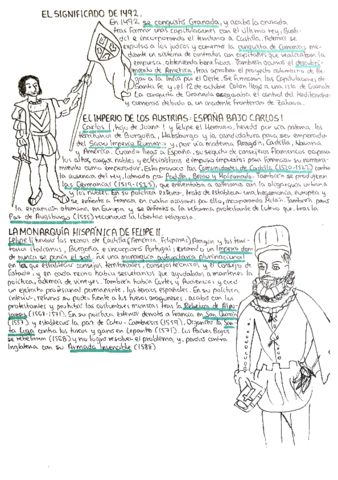 EL SIGNIFICADO DE 1492.
En 1492 se conquista Granada, y acaba la cruzada
tras firmar unas capitulaciones con el último rey, Boab-
dil e incorporando el territorio a Castilla. Además se
expulsa a los judíos y comienza la conquista de Canarias me-
diante un sistema de contratos con capitanes que realizaban la
empresa, obteniendo beneficios. También acaeció el descubri-
miento de América, tras aprobar el proyecto colombino de lle-
gar a la India por el Oeste. Se firmaron las Capitulaciones de
Santa Fe y el 12 de octubre Colón llegó a una isla de Guanahí
La conquista de Granada aseguraba el control del Mediterráneo
y comercio debido a un acabada fronteran de
EL IMPERIO DE LOS AUSTRIAS: ESPAÑA BAJO CARLOS I
Carlos I, hijo de Juana I y Felipe el Hermoso, heredó por vía paterna los
territorios de Borgoña, Habsburgo y la candidatura para ser emperador
del Sacro Imperio Romano y, por vía materna Aragón, Castilla, Navarra
y América. Cuando llegó a España, su séquito de consejeros flamencos ocuparon
los altos cargos nobles y eclesiásticos e impuso impuestos para financiar su nombra-
miento como emperador. Esto provocó las Comunidades de Castilla (1520-1521) contra
la ausencia del rey, liderado por Padilla, Bravo y Maldonado. También se produjeron
las Germanías (1519-1523), que enfrentaba a artesanos con la oligarquía urbana
y los nobles. En su política exterior, trató de establecer una hegemonía europea y
se enfrentó a Francia en cuatro ocasiones por ello, incorporando Milán. También paró
la expansión otomana en Europa y se enfrentó a la reforma protestante de Lutero que, tras la
Paz de Augsburgo (1555) reconoció la libertad religiosa.
LA MONARQUÍA HISPÁNICA DE FELIPE II.
Felipe II heredó los reinos de Castilla (América, Filipinas) Aragón y sus terri-
torios italianos, Borgoña e incorporó Portugal; reinando un Imperio don-
de nunca se ponía el sol. Fue una monarquía autoritaria plurinacional
en las que estableció consejos territoriales, consejos técnicos y el Consejo de
Estado, y en cada reino había secretarios que ayudaban a gobernar la
política, además de virreyes. También había Cortes y Audiencias; y creó
un ejército profesional permanente, los tercios españoles. En su política
interior, reforzó su poder frente a los fueros aragoneses, acabó con los
protestantes y prohibió las costumbres moriscas tras la Rebelión de Alpu-
jarras (1568-1571). En su política exterior derrotó a Francia en San Quintín
(1557) y estableció la paz de Cateau-Cambrésis (1559). Organizó la San-
ta Liga contra los turcos y ganó en Lepanto (1571). Los Países Bajos
se rebelaron (1568) y no logró resolver el problema, y perdió contra
Inglaterra con su Armada Invencible (1588)